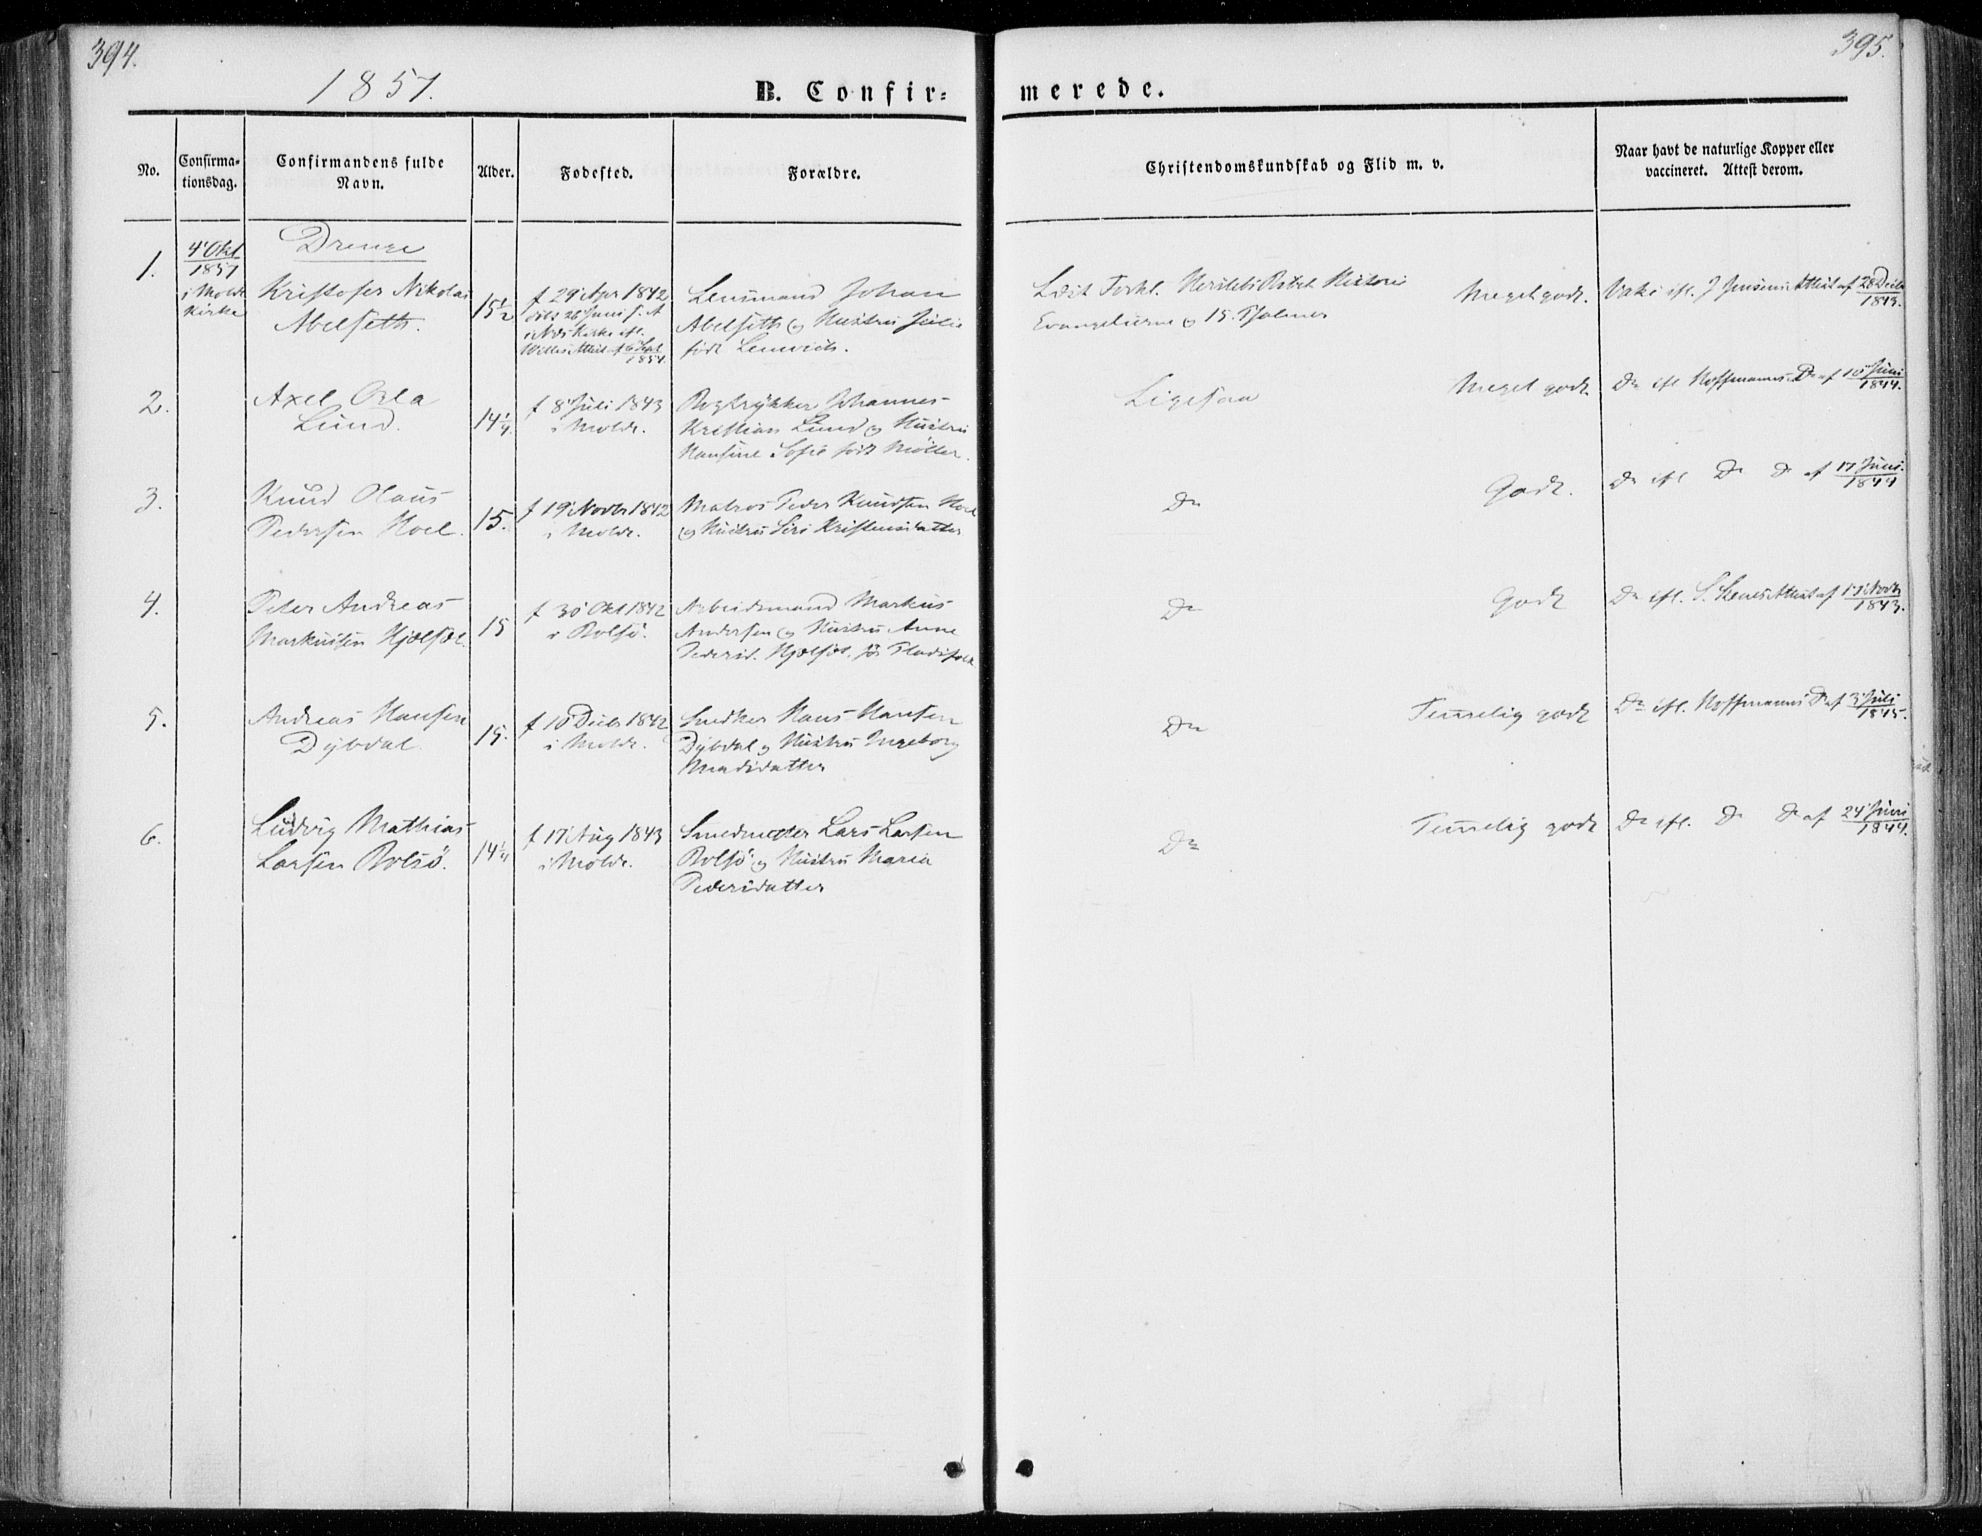 394.
395.
1857.
B. Confir-
merede.
No.
Confirma-
tionsdag.
Confirmandens fulde
Navn.
Alder.
Fødested.
Forældre.
Christendomskundskab og Flid m. v.
Naar havt de naturlige Kopper eller
vaccineret. Attest derom.
Drenge
1.
4' Okt
1857
i Molde
Kirke
Kristofer Nikolai
Abelseth.
15½
f 29' Apr 1842
døbt 26' Juni s. A
i Kirke ifl.
Attest af Sept
1857.
Lensmand Johan
Abelseth og Hustru Julie
født
Læst Forkl. Bibel Historie
Evangelierne og 15. Psalmer
Meget godt.
Vakc ifl. J Jensens Attest af 28 Decbr
1843.
2.
Axel Orla
Lund.
14¼
f 8' Juli 1843
i Molde.
Bogtrykker Johannes
Kristian Lund og Hustru
Hansine Sofie født Møller.
Ligesaa
Meget godt
Do ifl Hoffmanns Do af 10' Juni
1844.
3.
Knud Olaus
Pedersen Hoel.
15.
f 19' Novbr 1842
i Molde.
Matros Peder Knudsen Hoel
og Hustru Siri Kristensdatter
Do
Godt.
Do ifl Do Do af 17' Juni
1844
4.
Peter Andreas
Markussen Hjelset.
15
f 30' Okt 1842
i Bolsø.
Arbeidsmand Markus
Andersen og Hustru Anne
Pedersd. Hjelset.
Do
Godt
Do ifl. S. Attest af Novbr
1843.
5.
Andreas Hansen
Dybdal.
15.
f 10' Decbr 1842
i Molde.
Snedker Hans Hansen
Dybdal og Hustru Ingeborg
Madsdatter
Do
Temmelig godt
Do ifl. Hoffmanns Do af 3' Juli
1845.
6.
Ludvig Mathias
Larsen Bolsø.
14¼
f 17' Aug 1843
i Molde.
Smedmester Lars Larsen
Bolsø og Hustru Maria
Pedersdatter
Do
Temmelig godt
Do ifl. Do Do af 24' Juni
1844.